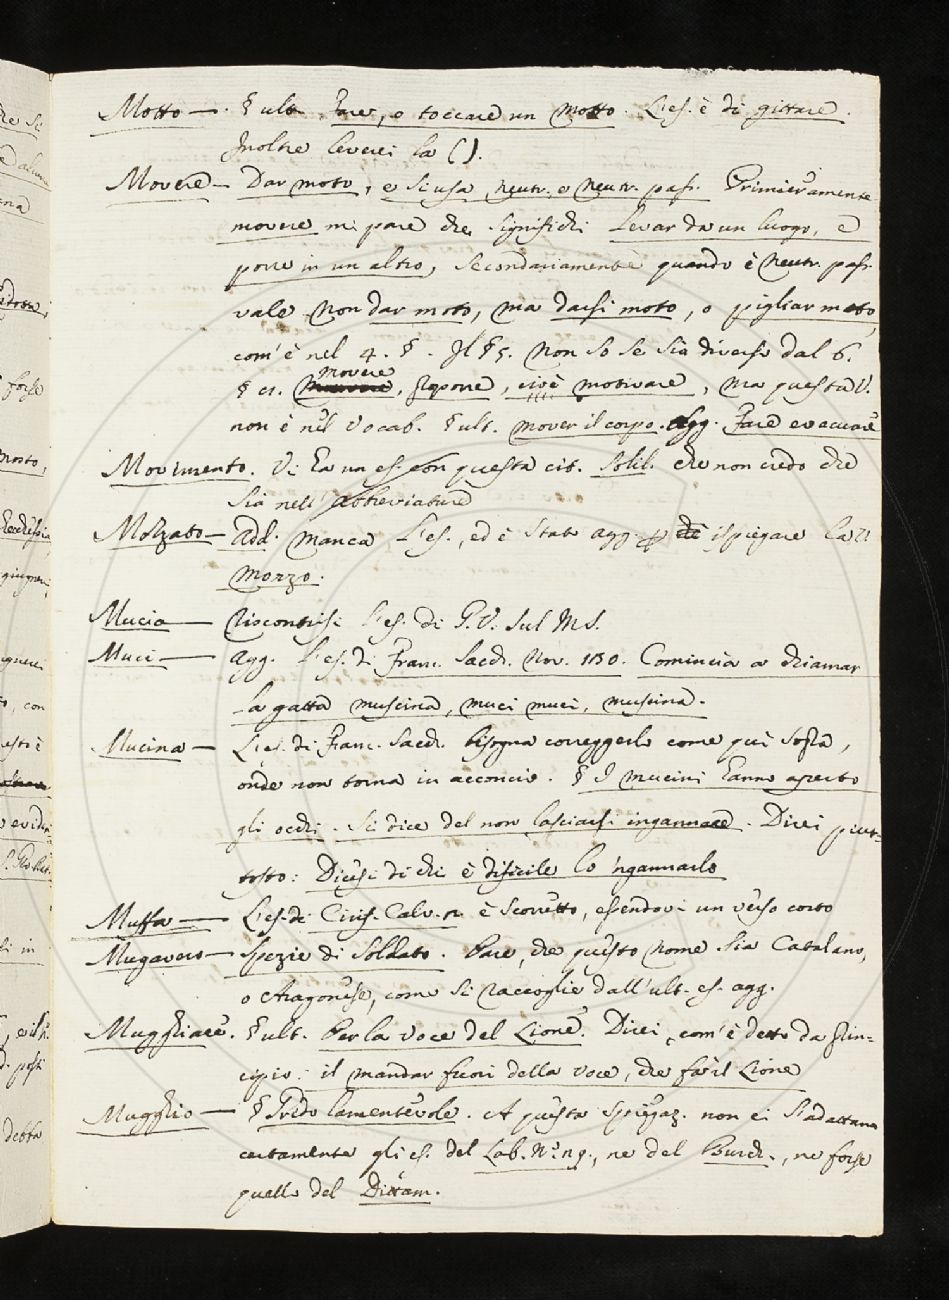 Motto — . § ult. Fare, o toccare un motto. L'es. è di gittare.
Inoltre leverei la ( ).
Movere — Dar moto, e si usa neutr. e neutr. pass. Primieramente
movere mi pare che significhi Levar da un luogo, e
porre in un altro, secondariamente quando è neutr. pass.
vale non dar moto, ma darsi moto, o pigliar moto,
com'è nel 4. §. Il § 5. non so se sia diverso dal 6.
movere
§ 11. , proporre, cioè motivare, ma questa V.
non è nel Vocab. § ult. mover il corpo. Agg. Fare evacuare
Movimento. V. Ha un es. con questa cit. Solil. che non credo che
sia nell'abbreviature
Mozzato — add. manca l'es., ed è stato agg. p che ispiegare la V.
mozzo.
Mucia — Riscontrisi l'es. di G.V. sul MS.
Muci — agg. l'es. di Franc. Sacch. Nov. 130. Comincia a chiamar
la gatta muscina, muci muci, muscina.
Mucina — L'es. di Franc. Sacch. bisogna correggerlo come qui sopra,
onde non torna in acconcio. § I mucini hanno aperto
gli occhi. Si dice del non lasciarsi ingannare. Direi piut-
tosto: Dicesi di chi è difficile lo 'ngannarlo
Muffa — L'es. di Cirif. Calv. è scorretto, essendovi un verso corto
Mugavero — spezie di soldato. Pare, che questo nome sia Catalano,
o Aragonese, come si raccoglie dall'ult. es. agg.
Mugghiare. § ult. Per la voce del Lione. Direi, com'è detto da prin-
cipio: il mandar fuori della voce, che fa il Lione
Mugghio — § Grido lamentevole. A questa spiegaz. non ci s'adattano
certamente gli es. del Lab. N. 119., ne del Burch., ne forse
quello del Dittam.